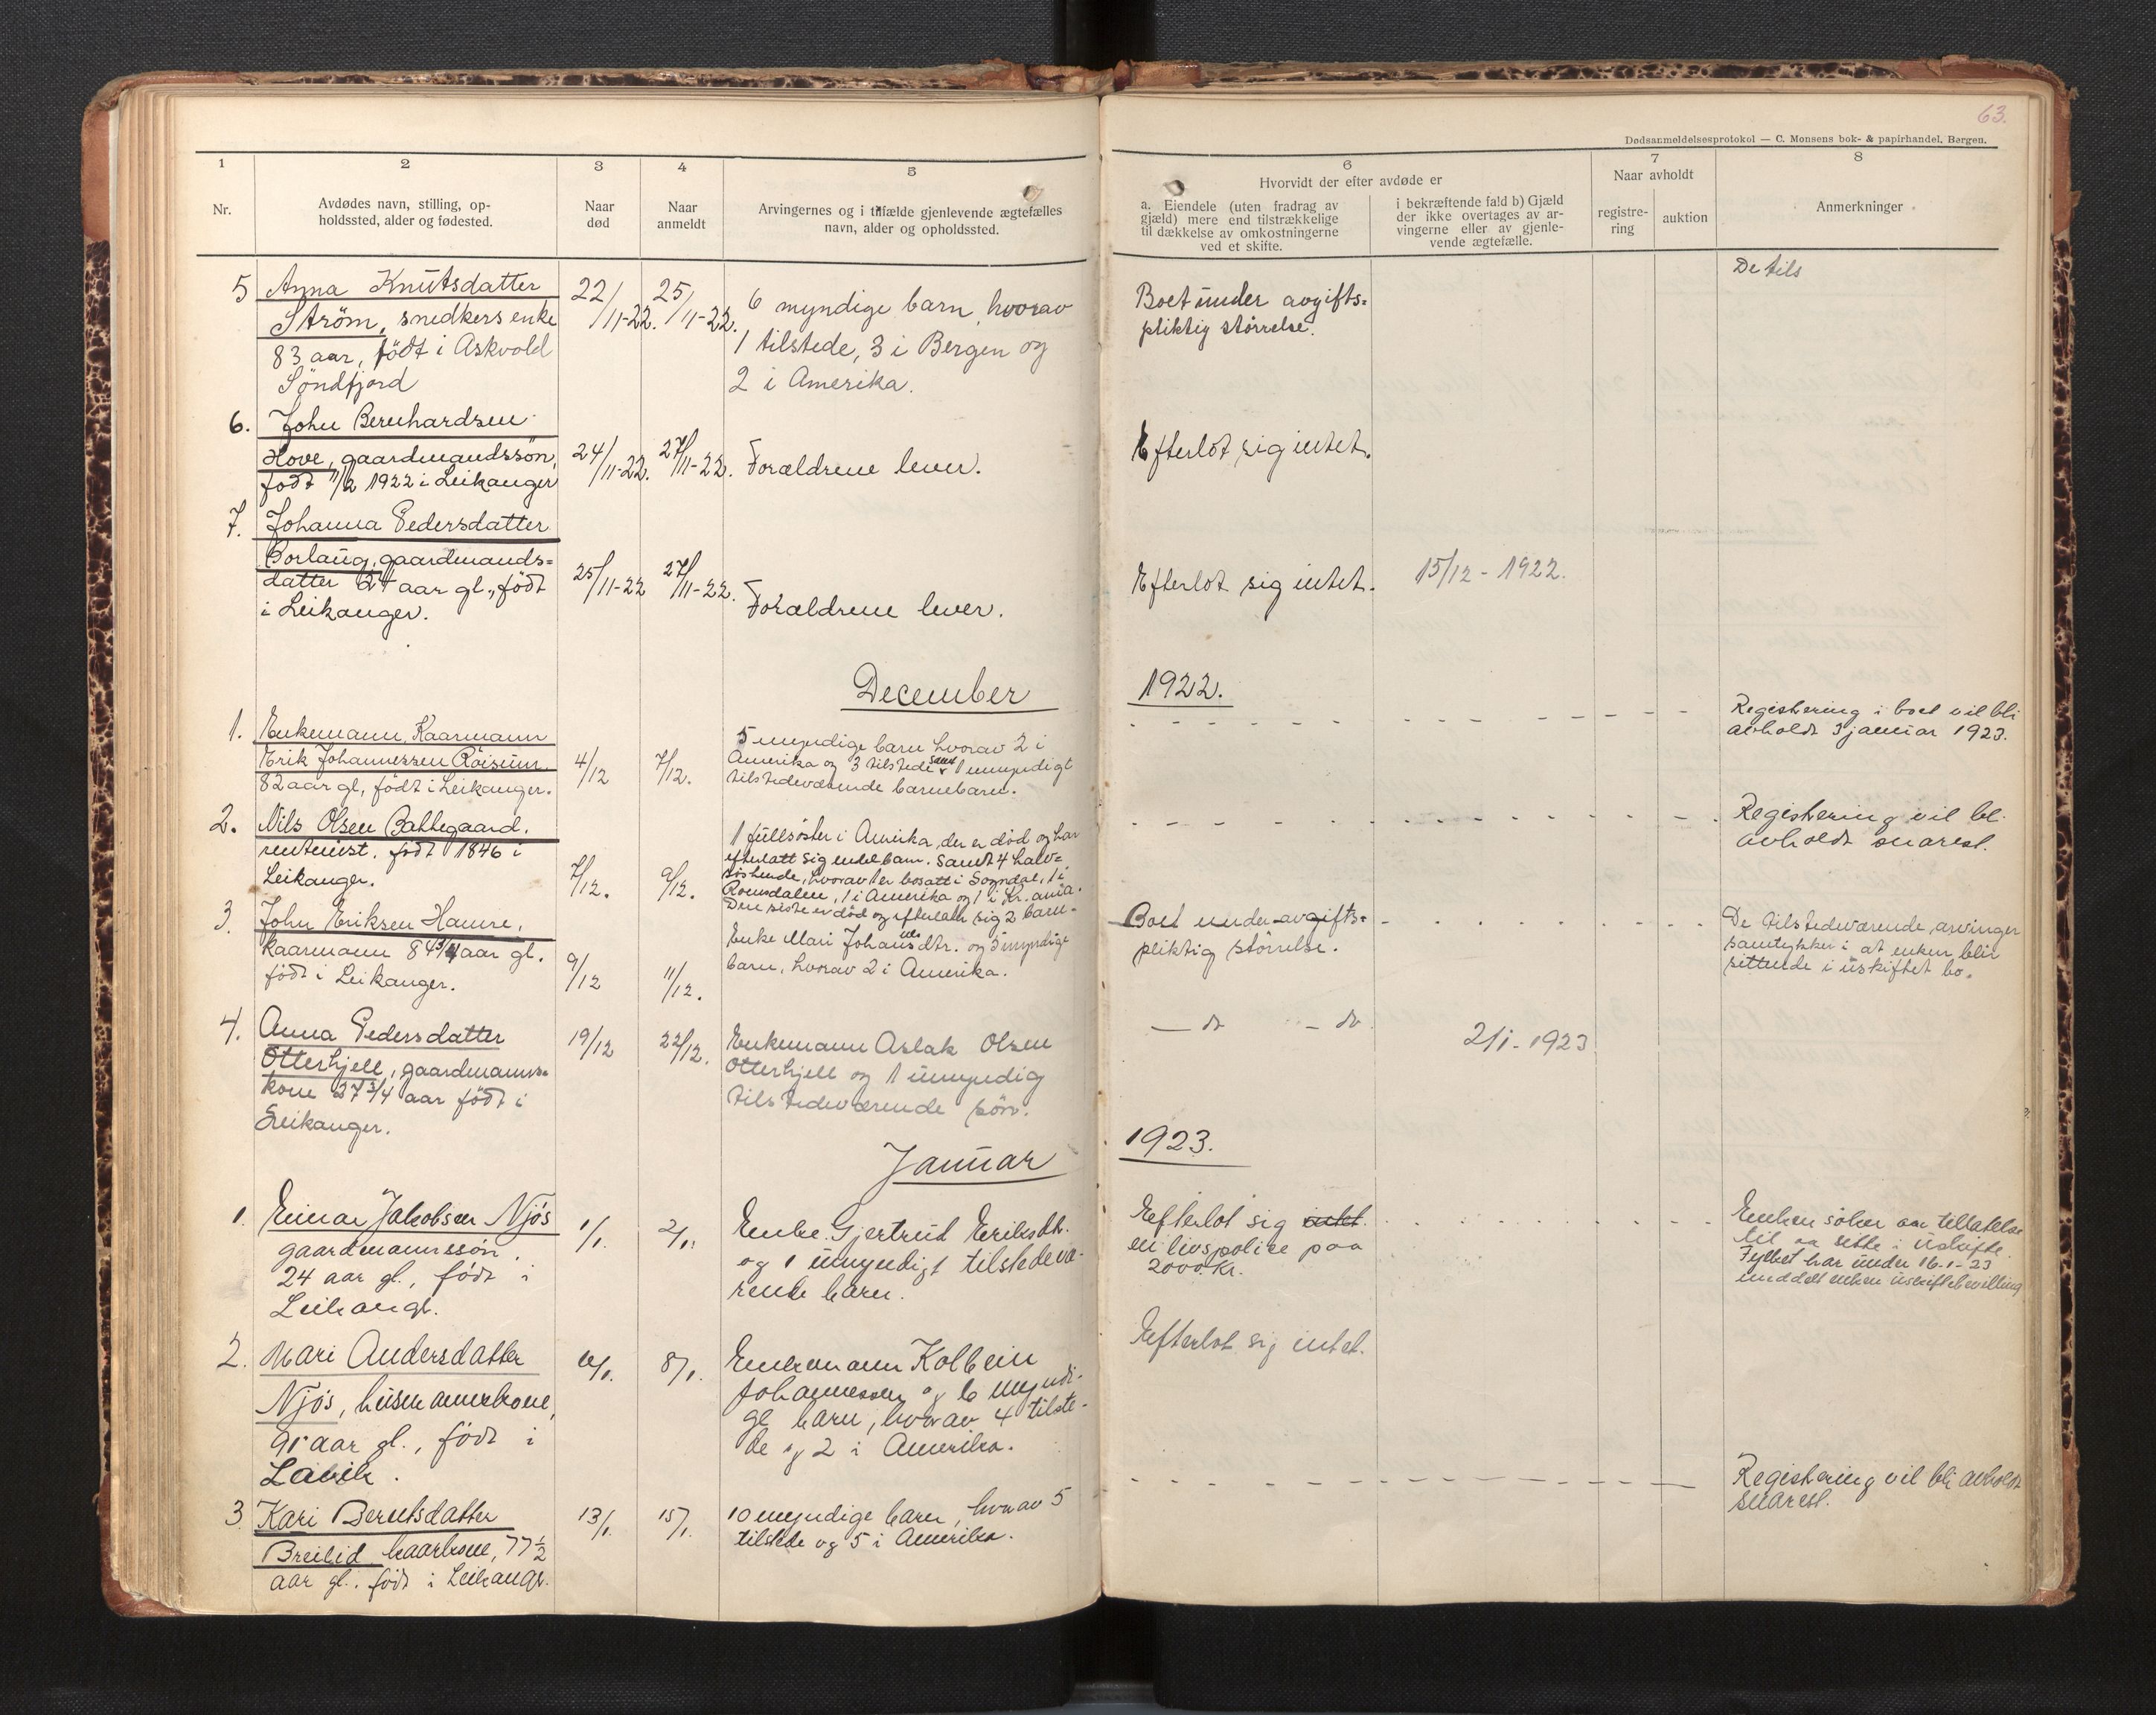 63.
Dødsanmeldelsesprotokol — C. Monsens bok- & papirhandel, Bergen.
1
2
3
4
5
6
7
8
Nr.
Avdødes navn, stilling, op-
holdssted, alder og fødested.
Naar
død
Naar
anmeldt
Arvingernes og i tilfælde gjenlevende ægtefælles
navn, alder og opholdssted.
Hvorvidt der efter avdøde er
a. Eiendele (uten fradrag av
gjæld) mere end tilstrækkelige
til dækkelse av omkostningerne
ved et skifte.
i bekræftende fald b) Gjæld
der ikke overtages av ar-
vingerne eller av gjenle-
vende ægtefælle.
Naar avholdt
registre-
ring
auktion
Anmerkninger
5 Anna Knutsdatter
Strøm, snedkers enke
83 aar, født i Askvold
Søndfjord
22/11-22.
25/11-22.
6 myndige barn, hvorav
1 tilstede, 3 i Bergen og
2 i Amerika.
Boet under avgifts=
pliktig størrelse.
De tils
6. John Bernhardsen
Hove, gaardmandssøn,
født 11/2 1922 i Leikanger
24/11-22.
27/11-22.
Forældrene lever.
Efterlot sig intet.
7. Johanna Pedersdatter
Borlaug, gaardmands=
datter 24 aar gl., født
i Leikanger.
25/11-22
27/11-22.
Forældrene lever.
Efterlot sig intet.
15/12 - 1922.
December 1922.
1. Enkemann, Kaarmann
Erik Johannessen Røisum.
82 aar gl, født i Leikanger.
4/12
7/12.
5 myndige barn hvorav 2 i
Amerika og 3 tilstede samt 1 umyndigt
tilstedeværende barnebarn.
Registrering i boet vil bli
avholdt 3 januar 1923.
2. Nils Olsen Battegaard.
rentenist. født 1846 i
Leikanger.
7/12.
9/12.
1 fullsøster i Amerika, der er død og har
efterlatt sig endel barn. Samt 4 halv=
søskende, hvorav 1 er bosatt i Sogndal, 1 i
Romsdalen, 1 i Amerika og 1 i Kr.ania.
Den siste er død og efterlatt sig 2 barn.
Registrering vil bl.
avholdt snarest.
3. John Eriksen Hamre,
kaarmann 84 3/4 aar gl.
født i Leikanger.
9/12
11/12.
Enke Mari Johannesdtr. og 5 myndige
barn, hvorav 2 i Amerika.
Boet under avgifts=
pliktig størrelse.
De tilstedeværende arvinger
samtykker i at enken blir
sittende i uskiftet bo.
4. Anna Pedersdatter
Otterhjell, gaardmanns=
kone 27 3/4 aar født i
Leikanger.
19/12
22/12.
Enkemann Aslak Olsen
Otterhjell og 1 umyndig
tilstedeværende søn.
— do — do
2/1 - 1923
Januar 1923.
1. Einar Jakobsen Njøs
gaardmannssøn.
24 aar gl., født i
Leikangr.
1/1.
2/1.
Enke Gjertrud Eriksdt.
og 1 umyndigt tilstedevæ-
rende barn.
Efterlot sig intet.
en livspolice paa
2000 kr.
Enken søker om tillatelse
til aa sitte i uskifte.
Fylket har under 16.1-23
meddelt enken uskiftebevilling
2. Mari Andersdatter
Njøs, husmannskone,
91 aar gl., født i
Lavik.
6/1.
8/1.
Enkemann Kolbein
Johannessen og 6 myndi-
ge barn, hvorav 4 tilste-
de og 2 i Amerika.
Efterlot sig intet.
3. Kari Berntsdatter
Breilid kaarkone, 77 1/2
aar gl. født i Leikangr.
13/1.
15/1.
10 myndige barn, hvorav 5
tilstede og 5 i Amerika.
Registrering vil bli avholdt
snarest.